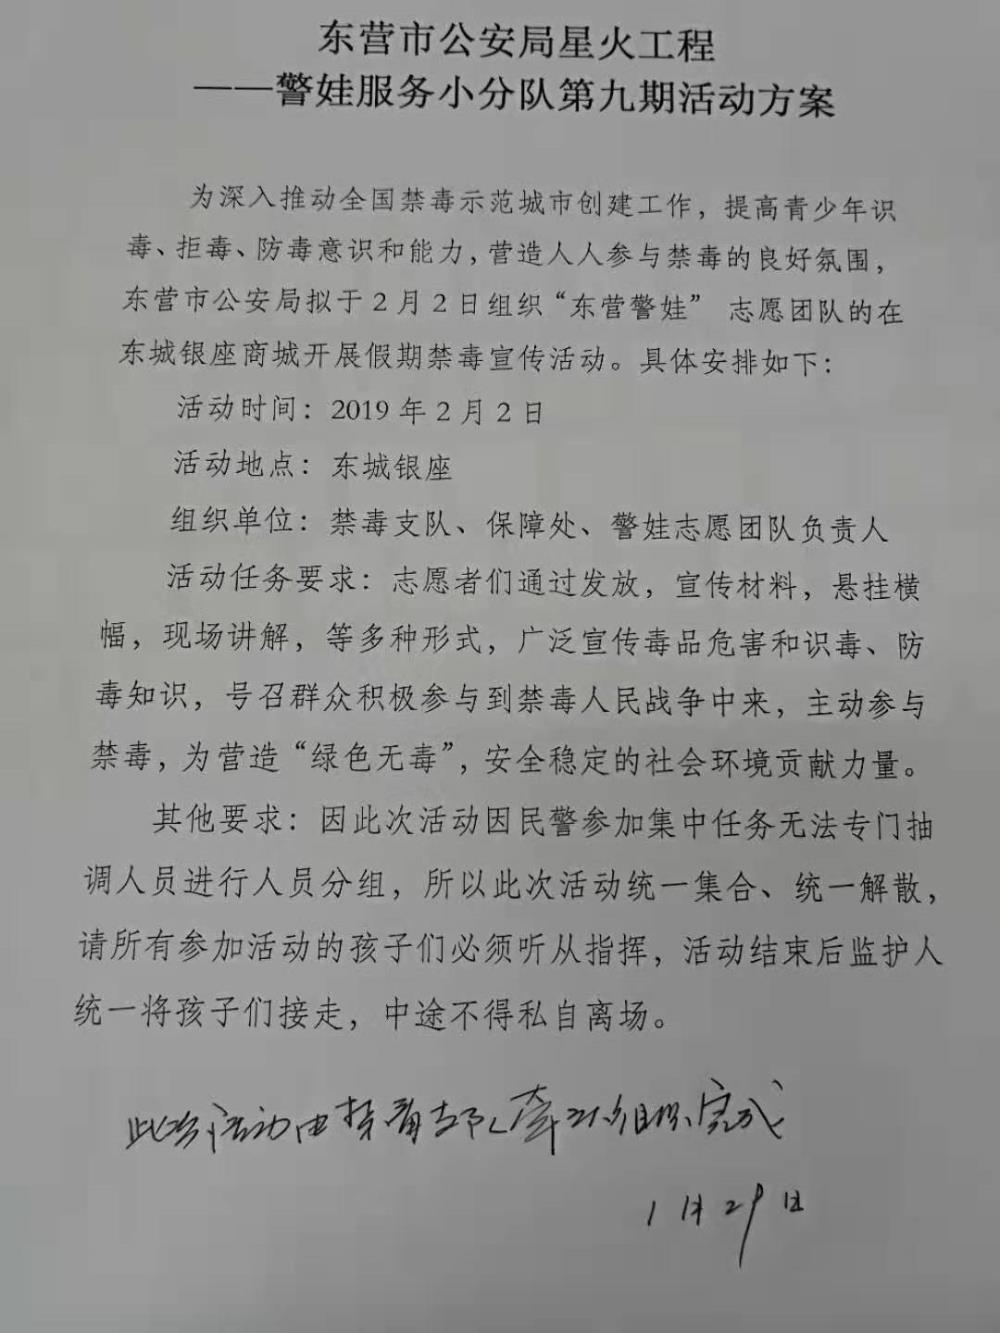 东营市公安局星火工程
——警娃服务小分队第九期活动方案
为深入推动全国禁毒示范城市创建工作，提高青少年识
毒、拒毒、防毒意识和能力，营造人人参与禁毒的良好氛围，
东营市公安局拟于2月2日组织“东营警娃” 志愿团队的在
东城银座商城开展假期禁毒宣传活动。具体安排如下：
活动时间：2019年2月2日
活动地点：东城银座
组织单位：禁毒支队、保障处、警娃志愿团队负责人
活动任务要求：志愿者们通过发放，宣传材料，悬挂横
幅，现场讲解，等多种形式，广泛宣传毒品危害和识毒、防
毒知识，号召群众积极参与到禁毒人民战争中来，主动参与
禁毒，为营造“绿色无毒”，安全稳定的社会环境贡献力量。
其他要求：因此次活动因民警参加集中任务无法专门抽
调人员进行人员分组，所以此次活动统一集合、统一解散，
请所有参加活动的孩子们必须听从指挥，活动结束后监护人
统一将孩子们接走，中途不得私自离场。
此次活动由禁毒支队牵头组织完成
1月29日